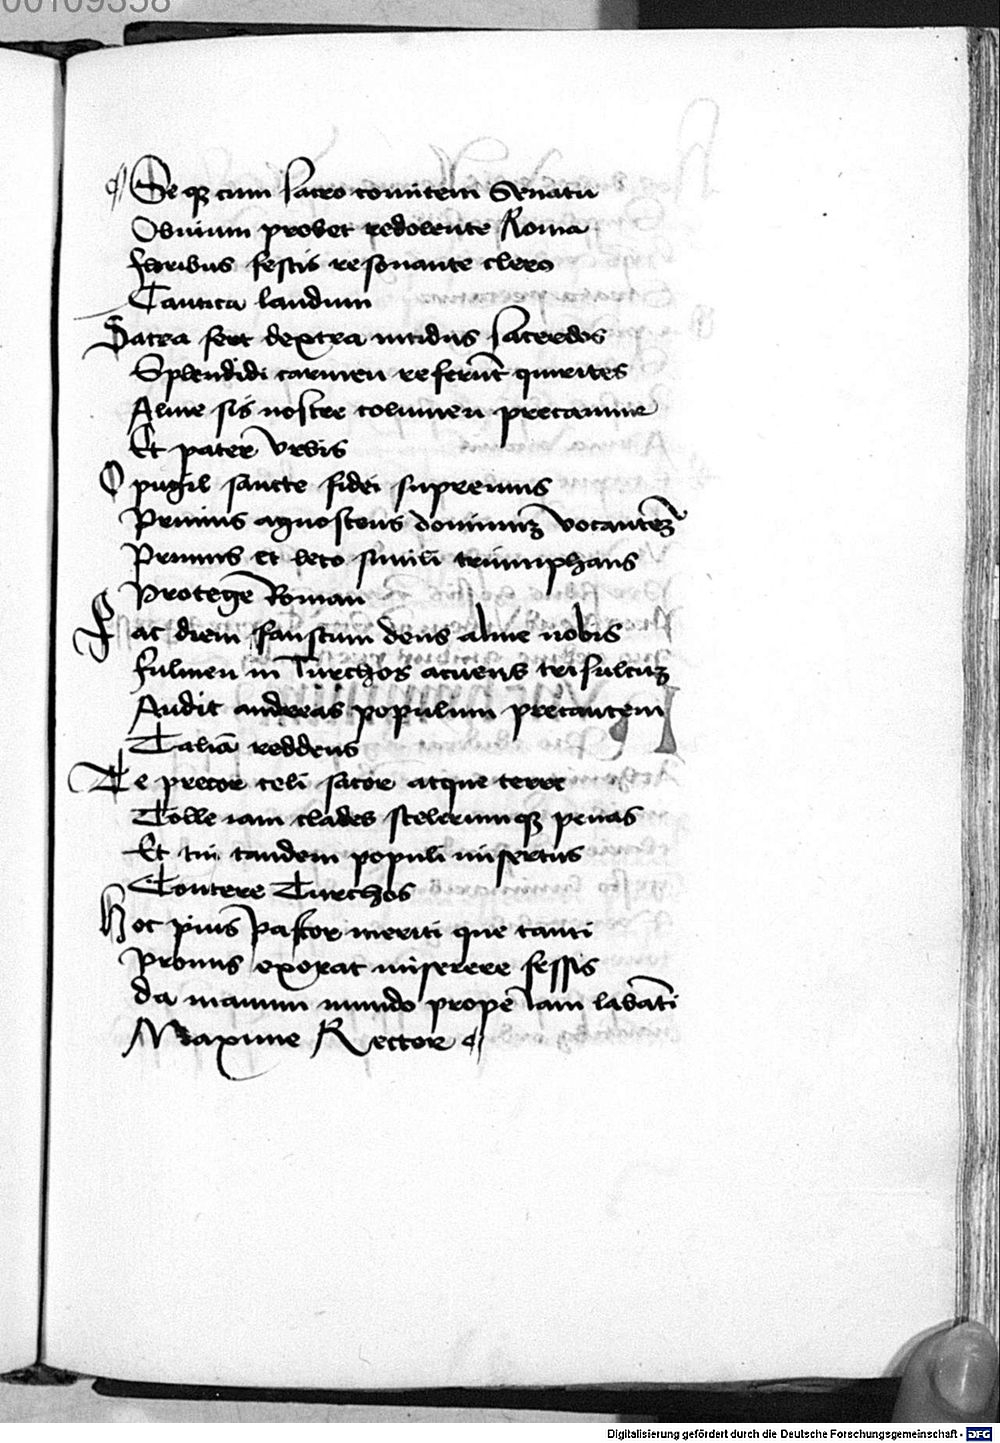 00109358
Se qz cum sacro comitem Senatu
Obuium probet redolente Roma
floribus festis resonante clero
Cantica laudum
Sacra fert dextra nitidus sacerdos
Splendidi carmen referūt quirites
Alme sis nostre columen precamine
Et pater Vrbis
O pugil sancte fidei supremus
Primus agnoscens dominuz vocantez
Primus et leto simili triumphans
Protege Roman
Fac diem faustum deus alme nobis
fulmen in Turchos acuens trisulcuz
Audit andreas populum precantem
Taliā reddens
Te precor celi sator atque terre
Tolle iam clades scelerumqz penas
Et tui tandem populi misertus
Contere Turchos
Hoc pius pastor meriti que tanti
Pronus exorat miserere fessis
da manum mundo prope iam labāti
Maxime Rector
Digitalisierung gefördert durch die Deutsche Forschungsgemeinschaft - DFG